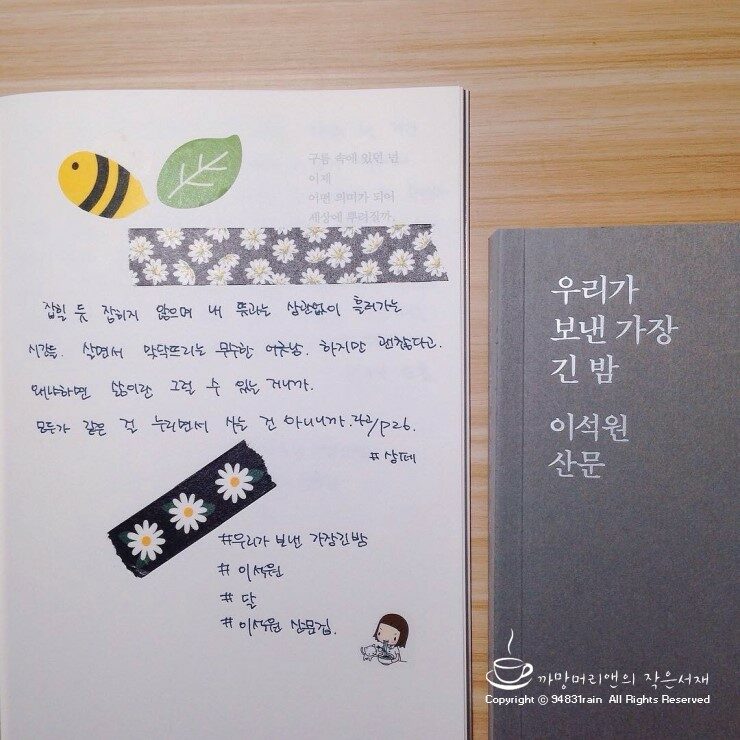 구름 속에 있던 널
이제
어떤 의미가 되어
세상에 뿌려질까.
잡힐 듯 잡히지 않으며 내 뜻과는 상관없이 흘러가는
시간들. 살면서 맞닥뜨리는 무수한 어긋남. 하지만 괜찮다고.
왜냐하면 삶이란 그럴 수 있는 거니까.
모두가 같은 걸 누리면서 사는 건 아니니까. /p26.
#우리가 보낸 가장긴밤
# 이석원
# 달
# 이석원 산문집.
우리가
보낸 가장
긴 밤
이석원
산문
까망머리앤의 작은서재
Copyright ⓒ 94831rain All Rights Reserved